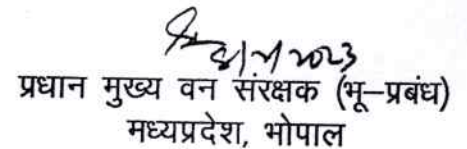 2023
प्रधान मुख्य वन संरक्षक (भू–प्रबंध)
मध्यप्रदेश, भोपाल